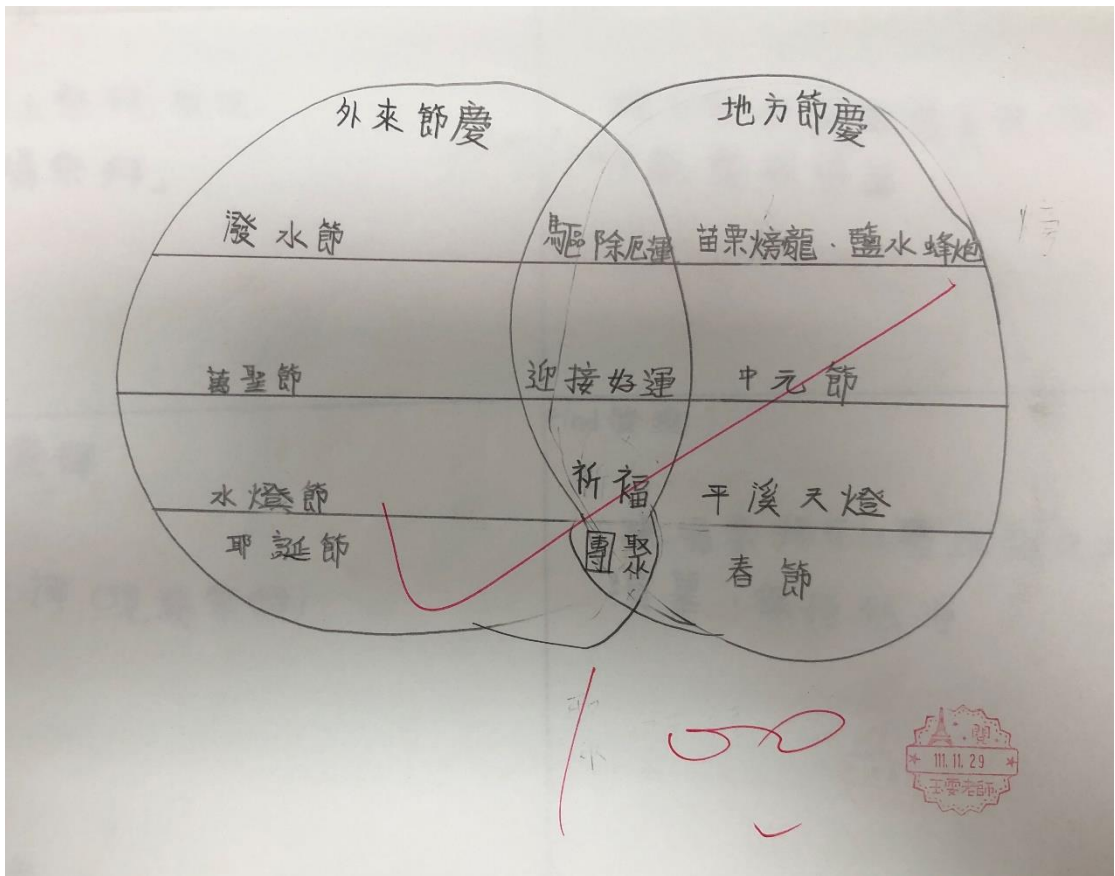 外來節慶 地方節慶
潑水節 驅除厄運 苗栗𪹚龍．鹽水蜂炮
萬聖節 迎接好運 中元節
水燈節 祈福 平溪天燈
耶誕節 團聚 春節
100
閱
111.11.29
玉雯老師